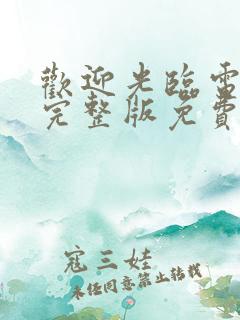 歡迎光臨電
完整版免費
寇三娃
未任同意禁止转载